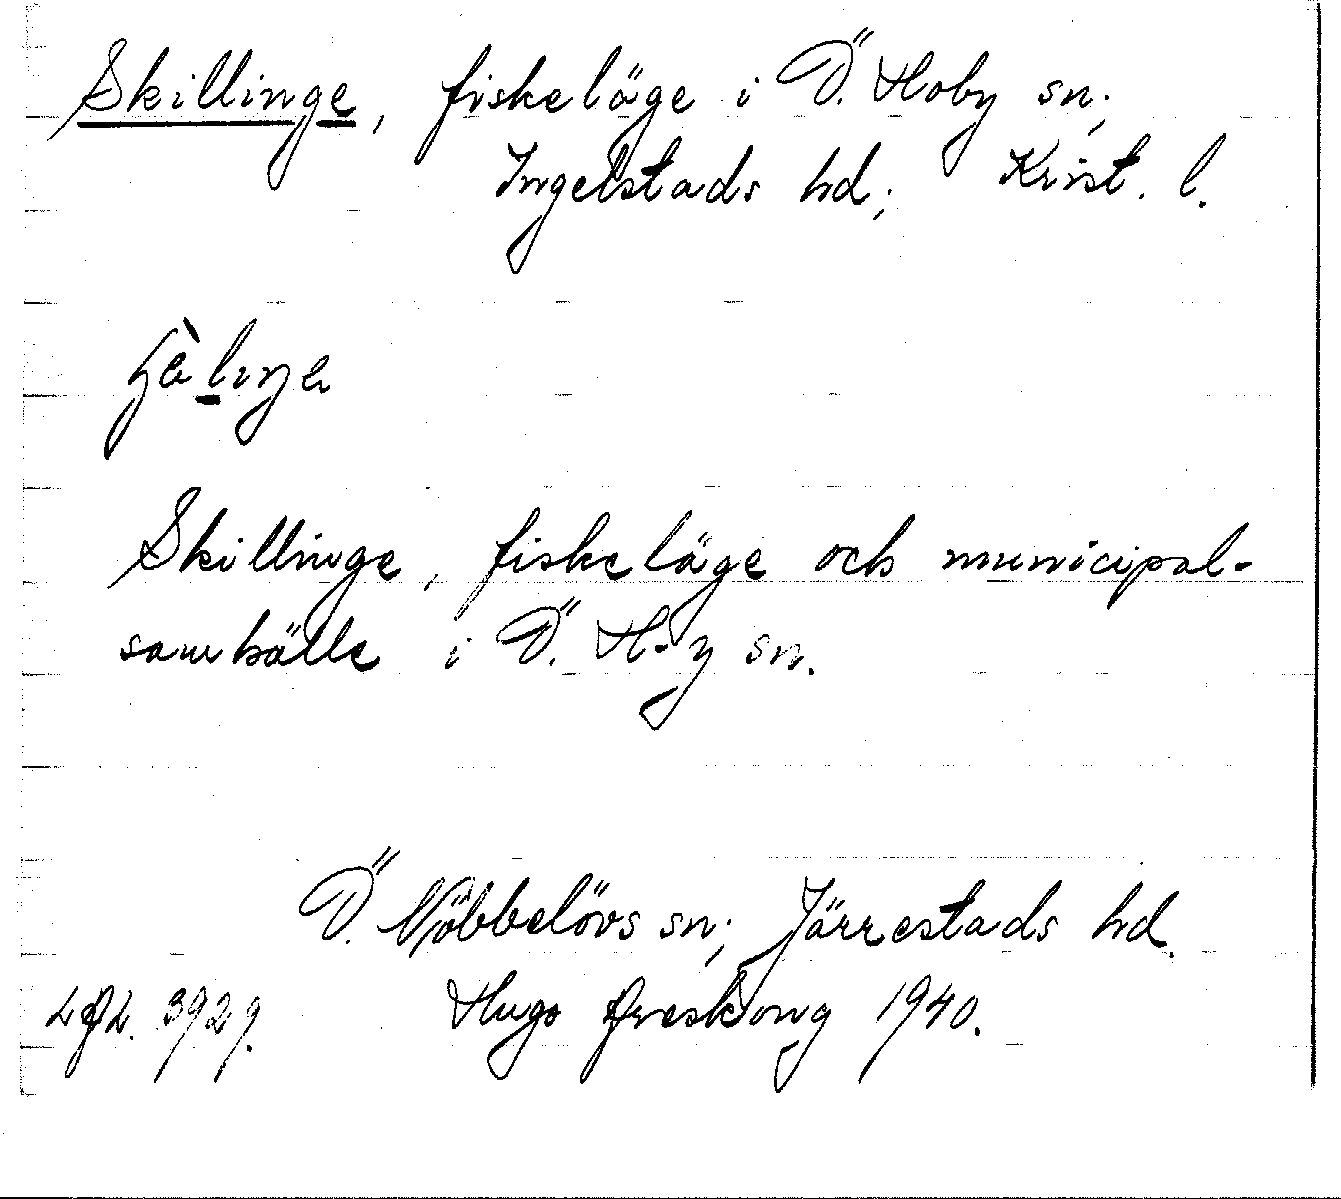 Skillinge, fiskeläge i Ö. Hoby sn;
Ingelstads hd; Krist. l.
Skillinge, fiskeläge och municipal-
samhälle i Ö. H-y sn.
Ö. Nöbbelövs sn; Järrestads hd.
3929. Hugo Areskoug 1940.